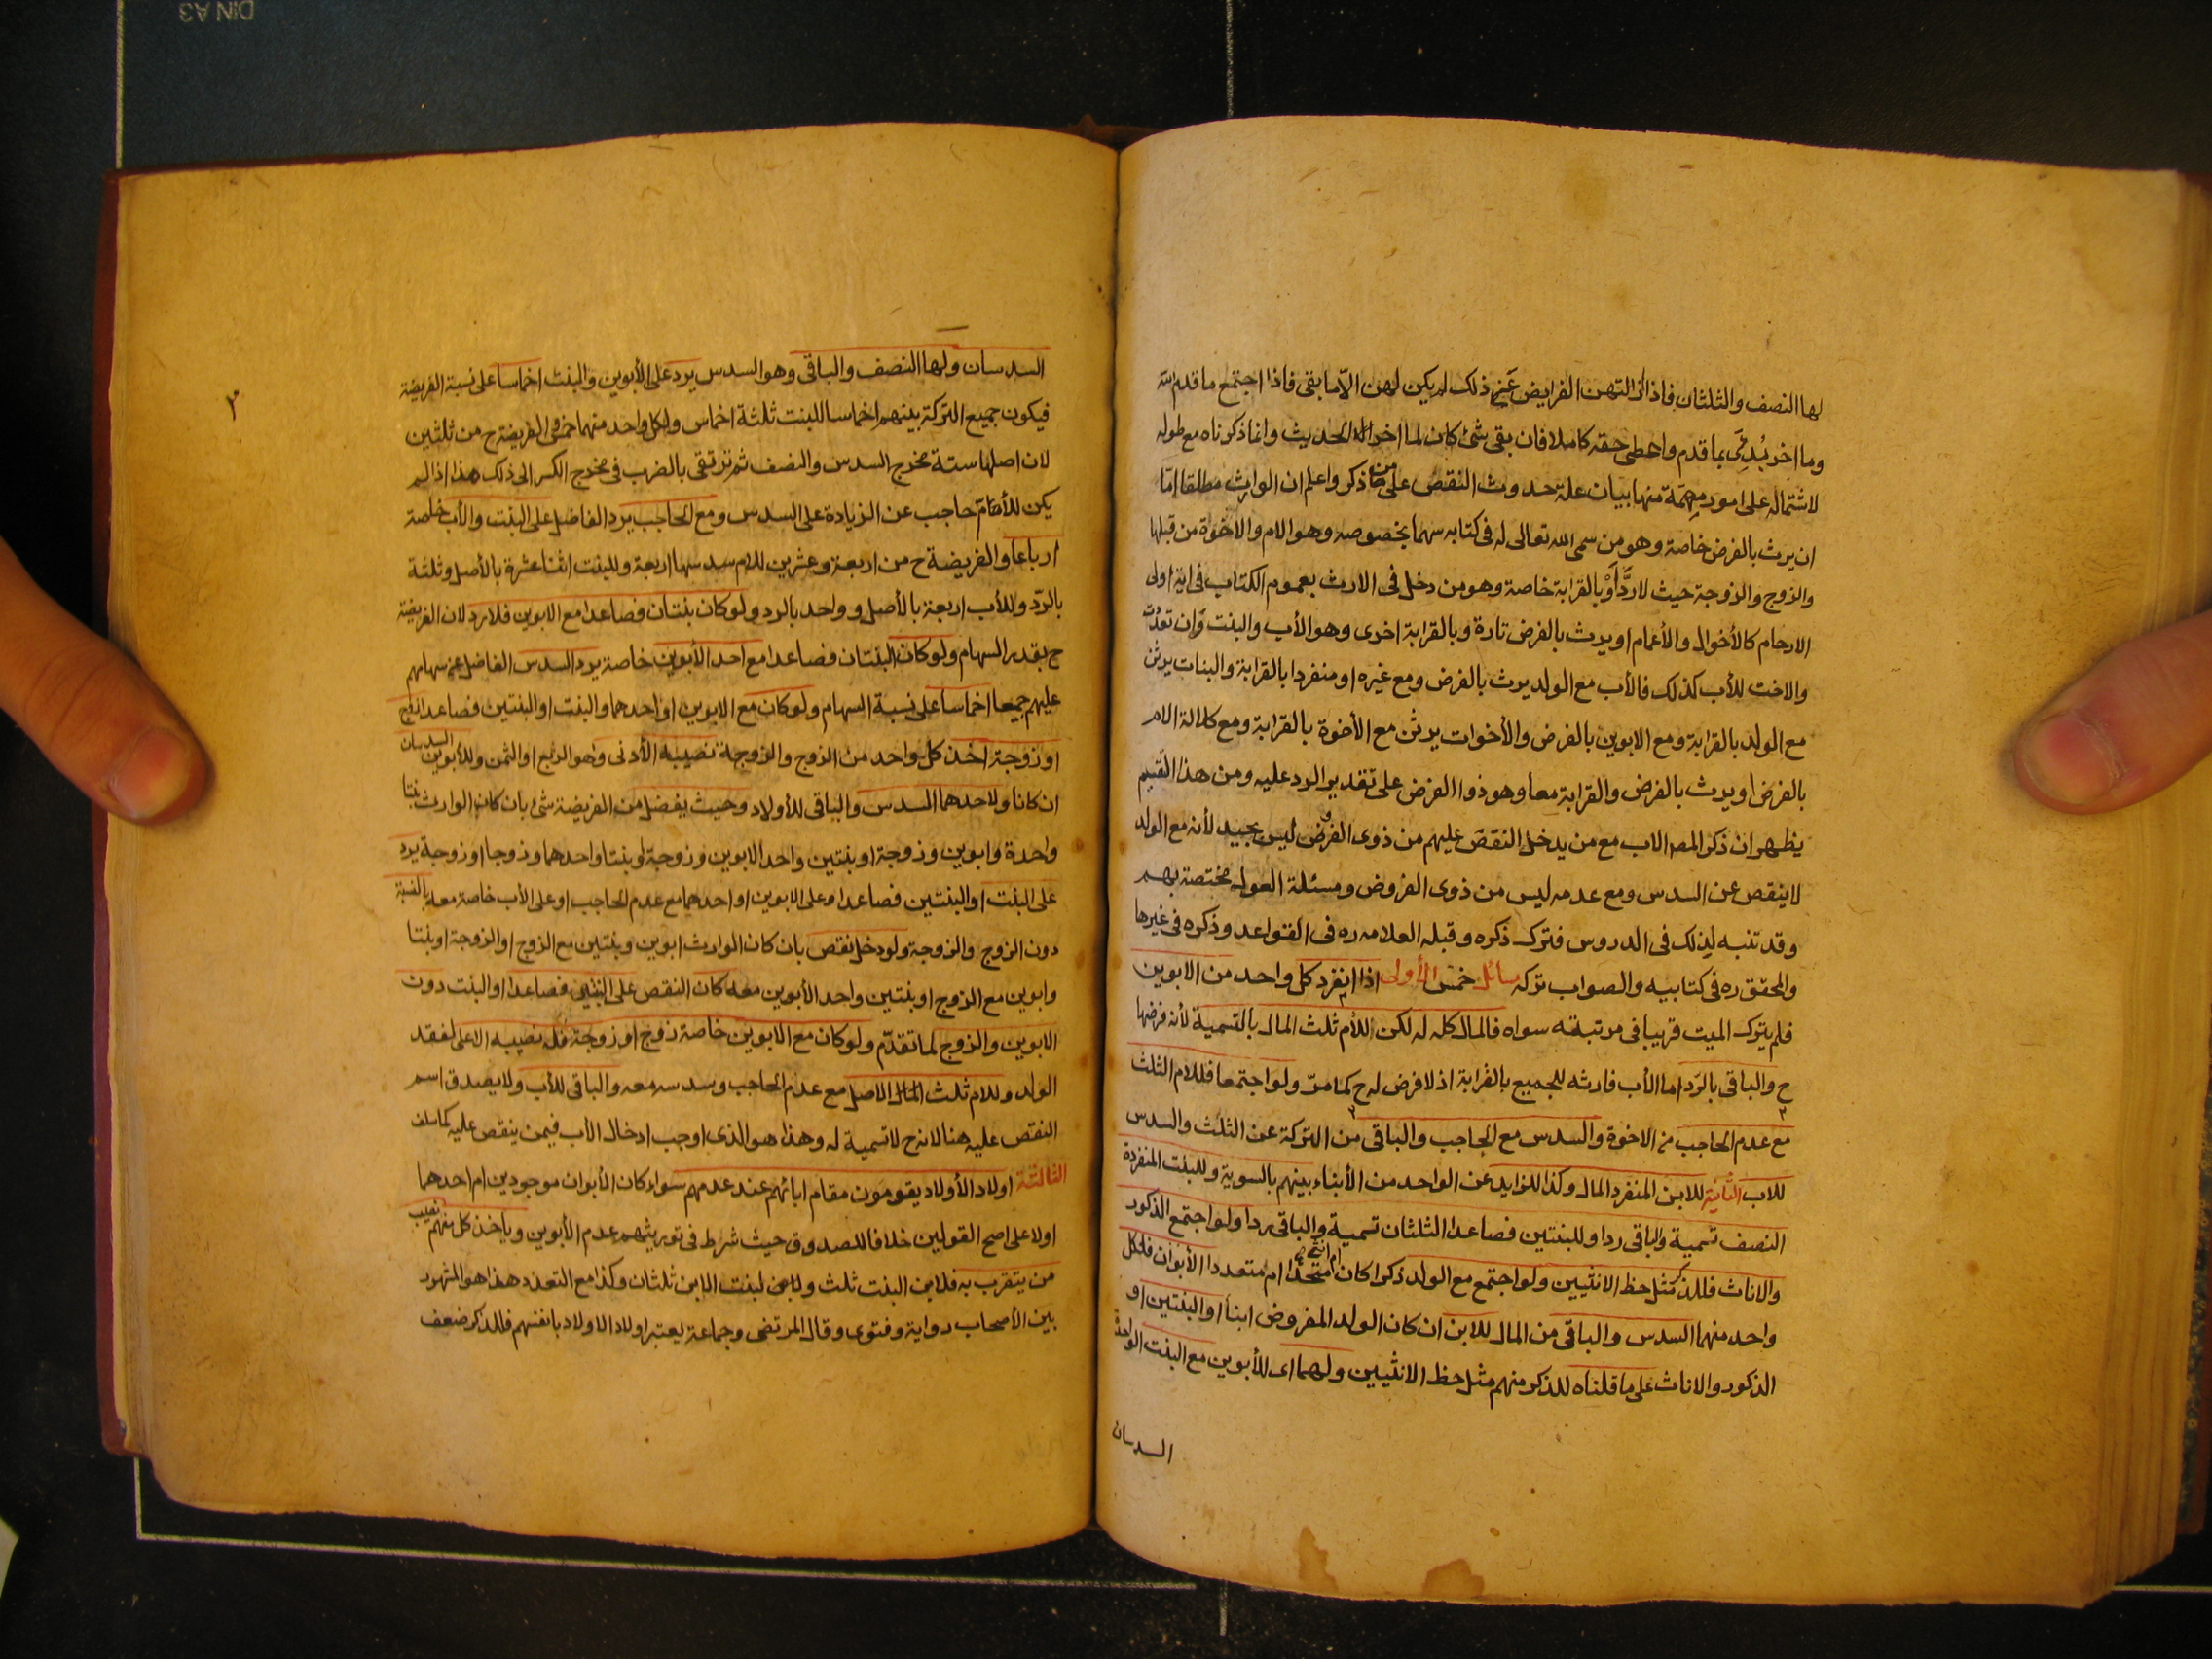 لها النصف والثلثان فاذا زالتهن الفرايض عن ذلك لم يكن لهن الا ما بقى فاذا اجتمع ما قدم الله
وما اخر بُدِئَ بما قدم واعطى حقه كاملا فان بقى شئ كان لما اخر الحديث وانما ذكرناه مع طوله
لاشتماله على امور مهمّة منها بيان علة حدوث النقص على من ذكر واعلم ان الوارث مطلقا امّا
ان يرث بالفرض خاصة وهو من سمى الله تعالى له فى كتابه سهما بخصوصه وهو الام والاخوة من قبلها
والزوج والزوجة حيث لا ردَّ أوْ بالقرابة خاصة وهو من دخل فى الارث بعموم الكتاب فى اية اولى
الارحام كالأخوال والأعمام او يرث بالفرض تارة وبالقرابة اخرى وهو الأب والبنت وان تعدّت
والاخت للأب كذلك فالأب مع الولد يرث بالفرض ومع غيره او منفردا بالقرابة والبنات يرثن
مع الولد بالقرابة ومع الابوين بالفرض والأخوات يرثن مع الأخوة بالقرابة ومع كلالة الام
بالفرض او يرث بالفرض والقرابة معا وهو ذوا الفرض على تقدير الرد عليه ومن هذا القسم
يظهر ان ذكر المص الاب مع من يدخل النقص عليهم من ذوى الفروض ليس بجيد لأنه مع الولد
لا ينقص عن السدس ومع عدمه ليس من ذوى الفروض ومسئلة العول مختصة بهم
وقد تنبه لذلك فى الدروس فترك ذكره وقبله العلامه ره فى القواعد وذكره فى غيرها
والمحقق ره فى كتابيه والصواب تركه مسائل خمس الأولى اذا انفرد كل واحد من الابوين
فلم يترك الميت قريبا فى مرتبته سواه فالمال كله له لكن للأم ثلث المال بالتسمية لأنه فرضها
ح والباقى بالرّد اما الأب فارثه للجميع بالقرابة اذ لا فرض له ح كما مرّ ولو اجتمعا فللام الثلث
مع عدم الحاجب من الاخوة والسدس مع الحاجب والباقى من التركة عن الثلث والسدس
للاب الثانية للابن المنفرد المال وكذا للزايد عن الواحد من الأبناء بينهم بالسوية وللبنت المنفردة
النصف تسمية والباقى ردا وللبنتين فصاعدا الثلثان تسمية والباقى ردا ولو اجتمع الذكور
والاناث فللذكر مثل حظ الانثيين ولو اجتمع مع الولد ذكرا كان ام انثى متحدا ام متعددا الأبوان فلكل
واحد منهما السدس والباقى من المال للابن ان كان الولد المفروض ابنا او البنتين او
الذكور والاناث على ما قلناه للذكر منهم مثل حظ الانثيين ولهما اى للأبوين مع البنت الواحدة
السدسان
٣
السدسان ولها النصف والباقى وهو السدس يرد على الأبوين والبنت اخماسا على نسبة الفريضة
فيكون جميع التركة بينهم اخماسا للبنت ثلثة اخماس ولكل واحد منهما خمس والفريضة ح من ثلثين
لان اصلها ستة مخرج السدس والنصف ثم ترتقى بالضرب فى مخرج الكسر الى ذلك هذا اذا لم
يكن للأم حاجب عن الزيادة على السدس ومع الحاجب يرد الفاضل على البنت والأب خاصة
ارباعا والفريضة ح من اربعة وعشرين للام سدسها اربعة وللبنت اثنا عشرة بالأصل وثلثة
بالرّد وللأب اربعة بالأصل وواحد بالرد ولو كان بنتان فصاعدا مع الابوين فلا رد لان الفريضة
ح بقدر السهام ولو كان البنتان فصاعدا مع احد الأبوين خاصة يرد السدس الفاضل عن سهامهم
عليهم جميعا اخماسا على نسبة السهام ولو كان مع الابوين او احدهما والبنت او البنتين فصاعدا زوج
او زوجة اخذ كل واحد من الزوج والزوجة نصيبه الأدنى وهو الربع او الثمن وللأبوين السدسان
ان كانا ولاحدهما السدس والباقى للأولاد وحيث يفضل من الفريضة شئ بان كان الوارث بنتا
واحدة وابوين وزوجة او بنتين واحد الابوين وزوجة او بنتا واحدهما وزوجا او زوجة يرد
على البنت او البنتين فصاعدا وعلى الابوين او احدهما مع عدم الحاجب او على الأب خاصة معه بالنسبة
دون الزوج والزوجة ولو دخل نقص بان كان الوارث ابوين وبنتين مع الزوج او الزوجة او بنتا
وابوين مع الزوج او بنتين واحد الأبوين معه كان النقص على البنتين فصاعدا او البنت دون
الابوين والزوج لما تقدّم ولو كان مع الابوين خاصة زوج او زوجة فله نصيبه الاعلى لفقد
الولد وللام ثلث المال الاصل مع عدم الحاجب وسدسه معه والباقى للأب ولا يصدق اسم
النقص عليه هنا لانه ح لا تسمية له وهذا هو الذى اوجب ادخال الأب فيمن ينقص عليه كما سلف
الثالثة اولاد الأولاد يقومون مقام ابائهم عند عدمهم سواء كان الأبوان موجودين ام احدهما
اولا على اصح القولين خلافا للصدوق حيث شرط فى توريثهم عدم الأبوين وياخذ كل منهم نصيب
من يتقرب به فلابن البنت ثلث ولبنت الابن ثلثان وكذا مع التعدد هذا هو المشهور
بين الأصحاب رواية وفتوى وقال المرتضى وجماعة يعتبر اولاد الاولاد بانفسهم فللذكر ضعف